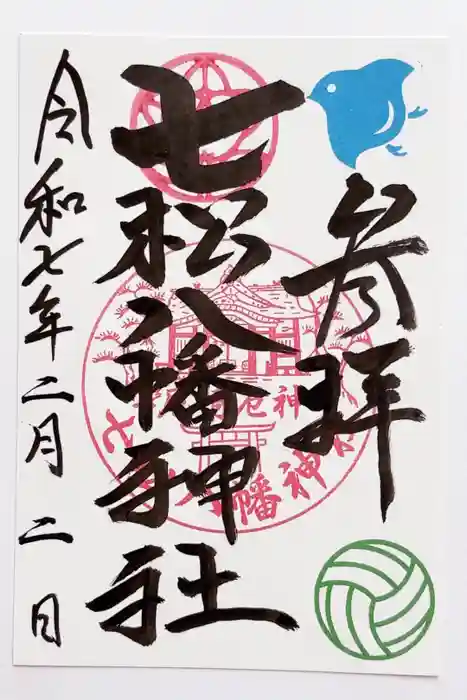 参拝
七松八幡神社
令和七年二月二日
厄神
七松八幡神社